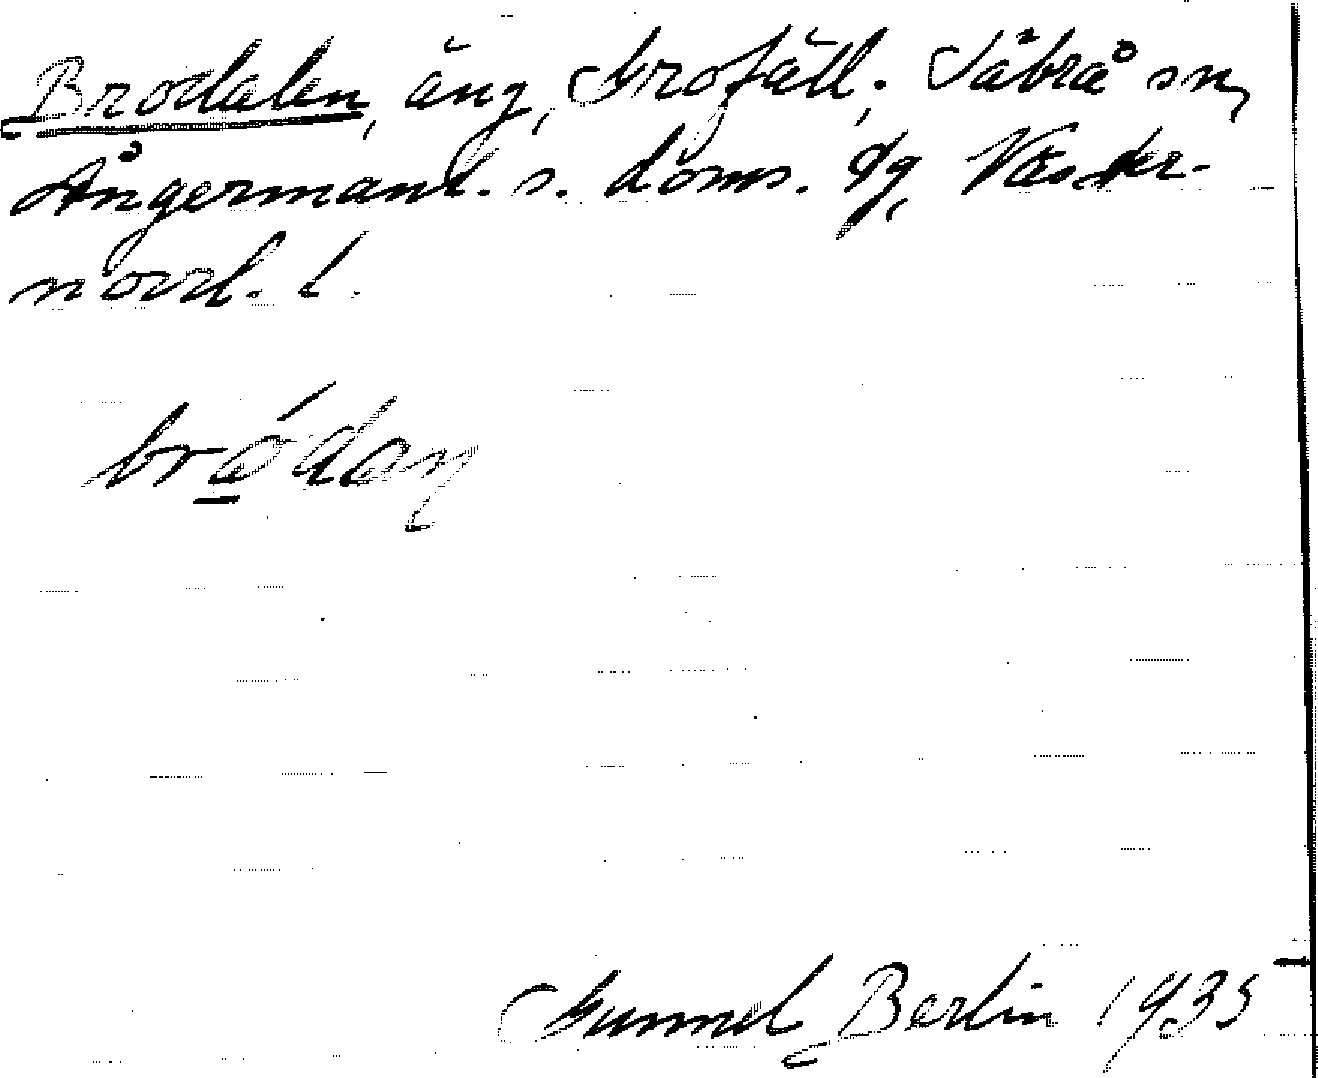 Brodalen, äng, Grofäll. Säbrå sn,
Ångermanl. s. doms. dg, Väster-
norrl. l.
Gunnel Berlin 1935